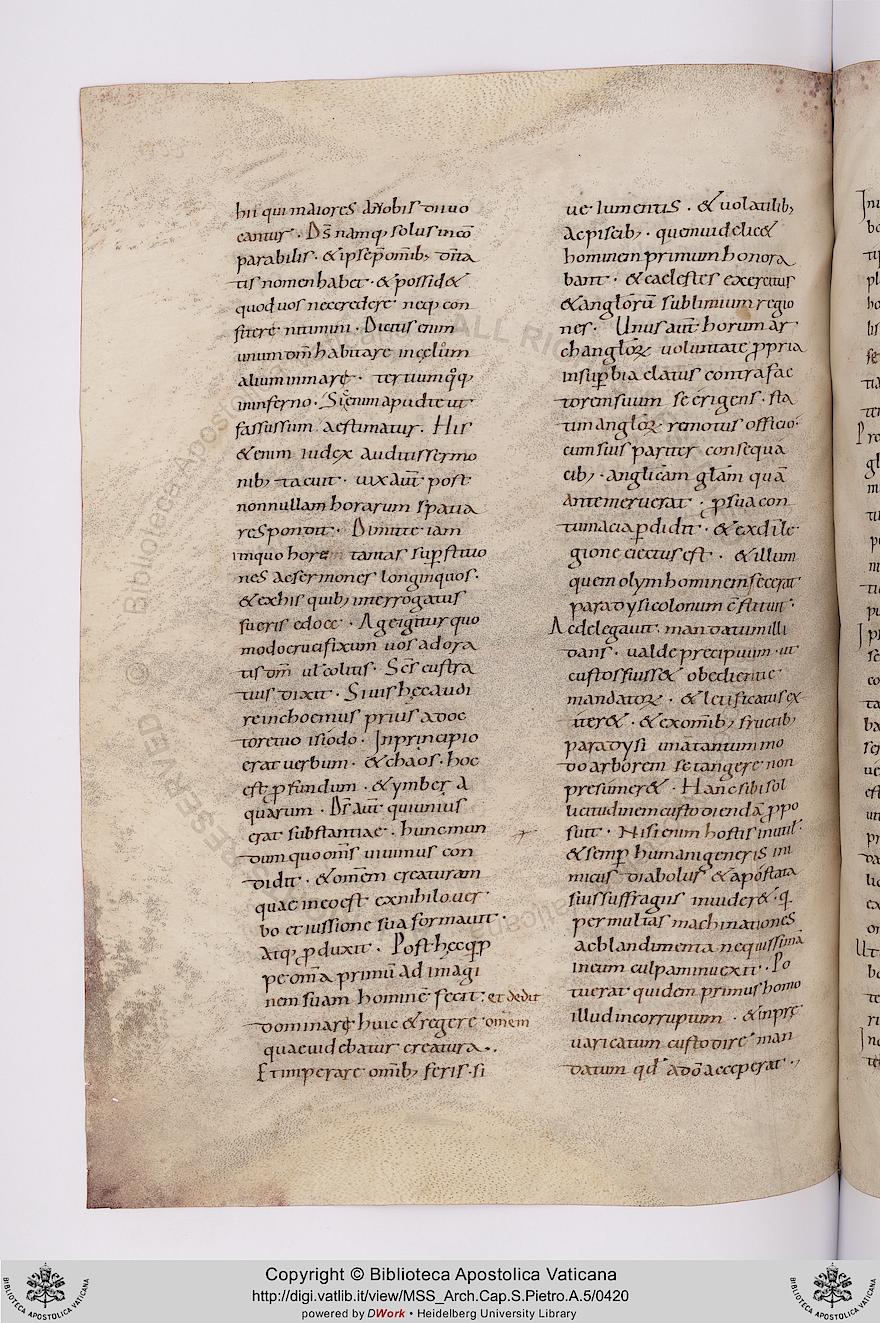 hii qui maiores anobis diuo
cantur. Ds̄ namq; solus incō
parabilis. & ipse p̄ om̄ib; om̄ia
tis nomen habet. & possid&
quod uos necredere neq; con
sitere nitimini. Dictus enim
unum dm̄ habitare in cęlum
alium in mare. tertium q̊q;
in inferno. Sic enim apud te ut
fassus sum aestimatur. His
& enim iudex auditis sermo
nib; tacuit. uix aut̄ post
nonnullam horarum spatia
respondit. Dimitte iam
inquo hore tantas sup̄stitio
nes ac sermones longinquos.
& ex his quib; interrogatus
fueris edoce. Age igitur quo
modo crucifixum uos adora
tis dm̄ ul̄ colitis. Sc̄s eustra
tius dixit. Si uis hęc audi
re inchoemus prius a doc
tore tuo isiodo. In principio
erat uerbum. & chaos. hoc
est p̱fundum. & ymber a
quarum. Ds̄ aut̄ qui unius
erat substantiae. hunc mun
dum quo om̄s uiuimus con
didit. & om̄em creaturam
quae in eo est ex nihilo uer
bo et iussione sua formauit.
Atq; p̱duxit. Post hęc q̱p̱
pe om̄a primū ad imagi
nem suam hominē fecit: et dedit
dominare huic & regere omem
quae uidebatur creatura.
Et imperare om̄ib; feris. si
ue iumentis. & uolatilib;
Ac piscib;. quem uidelic&
hominem primum honora
bant. & caelestes exercitus
& anglorū sublimium regio
nes. Unus aut̄ horum ar
changloꝝ uoluntate p̱pria
in sup̄bia elatus contra fac
torem suum se erigens. sta
tim angloꝝ remotus officio.
cum suis pariter consequa
cib;. anglicam glām quā
ante meruerat. p̱ sua con
tumacia p̱didit. & ex di le
gione eiectus est. & illum
quem olym hominem fecerat
paradysi colonum cōstituit.
Ac delegauit. mandatum illi
dans. ualde precipuum. ut
custos fuiss& obedientie
mandatoꝝ. & letificatus ex
iter&. & ex om̄ib; fructib;
paradysi una tantummo
do arborem se tangere non
presumer&. Hanc sibi sol
licitudinem custodiendā p̱po
suit. Nisi enim hostis inutil
& semp̱ humani generis ini
micus diabolus & apostata
suis suffragiis inuider&. q̱
per multas machinationes
ac blandimenta nequissima
in eum culpam inuexit. Po
tuerat quidem primus homo
illud incorruptum. & inpre
uaricatum custodire man
datum qd̄ a dō acceperat.
Copyright © Biblioteca Apostolica Vaticana
http://digi.vatlib.it/view/MSS_Arch.Cap.S.Pietro.A.5/0420
powered by DWork • Heidelberg University Library